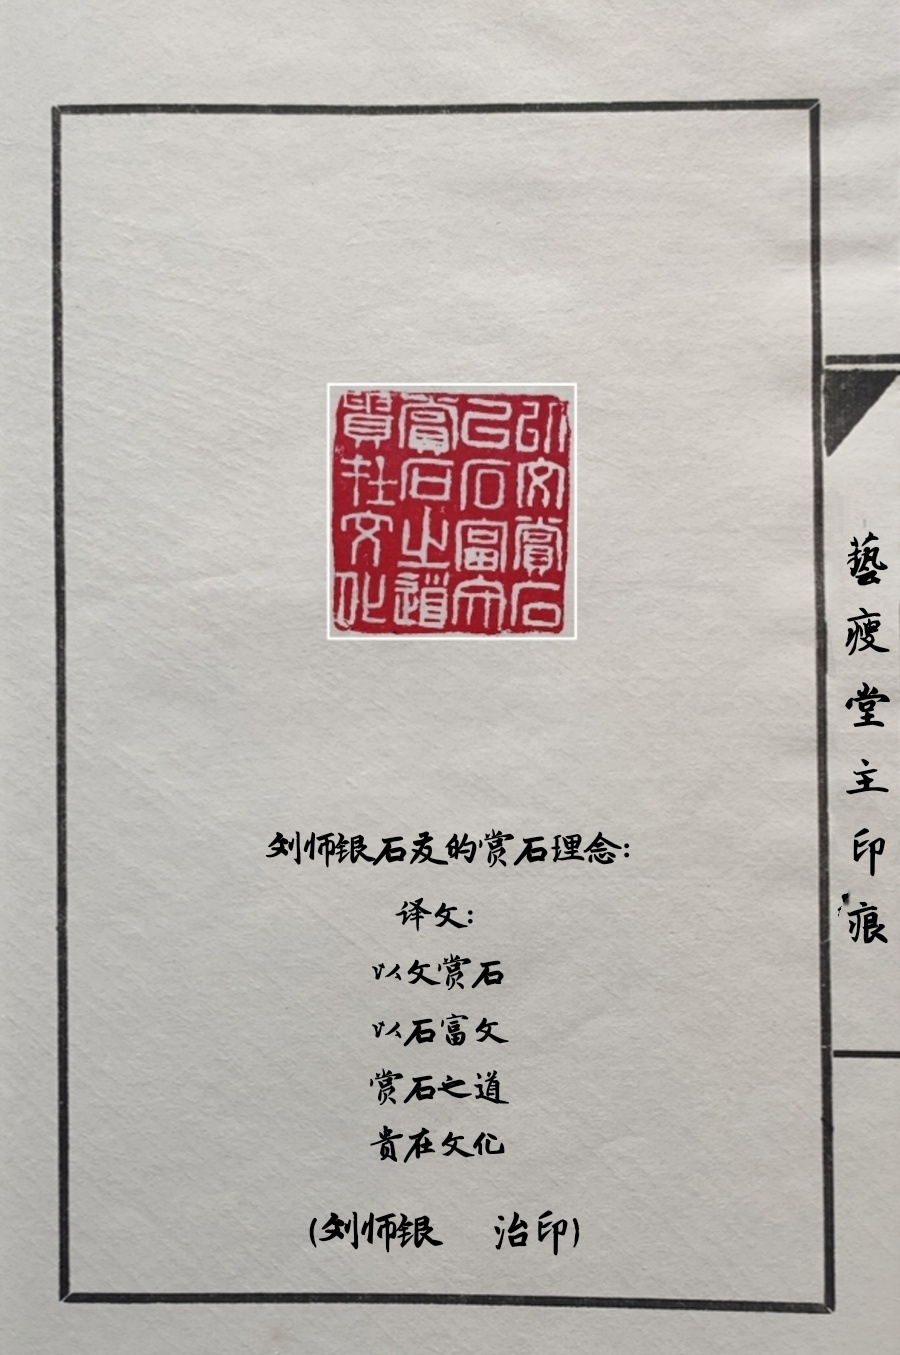 以文賞石
以石富文
賞石之道
貴在文化
刘师银石友的赏石理念：
译文：
以文赏石
以石富文
赏石之道
贵在文化
（刘师银　治印）
藝瘦堂主印痕